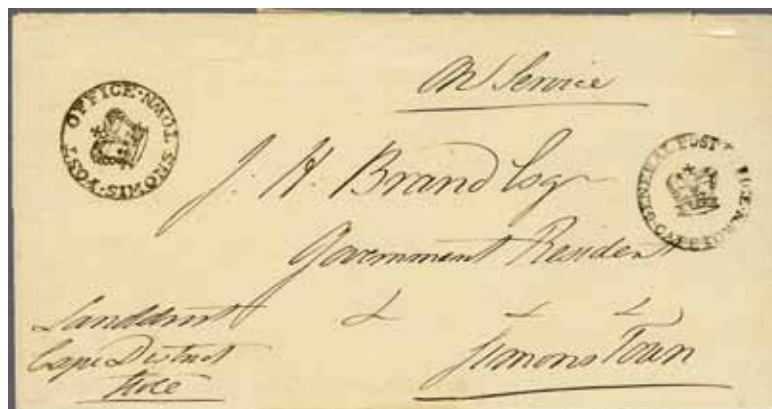 On Service
POST OFFICE·SIMONS·TOWN
GENERAL POST OFFICE·CAPE TOWN
J. H. Brand Esqr
Government Resident
& & &
Simons Town
Landdrost
Cape District